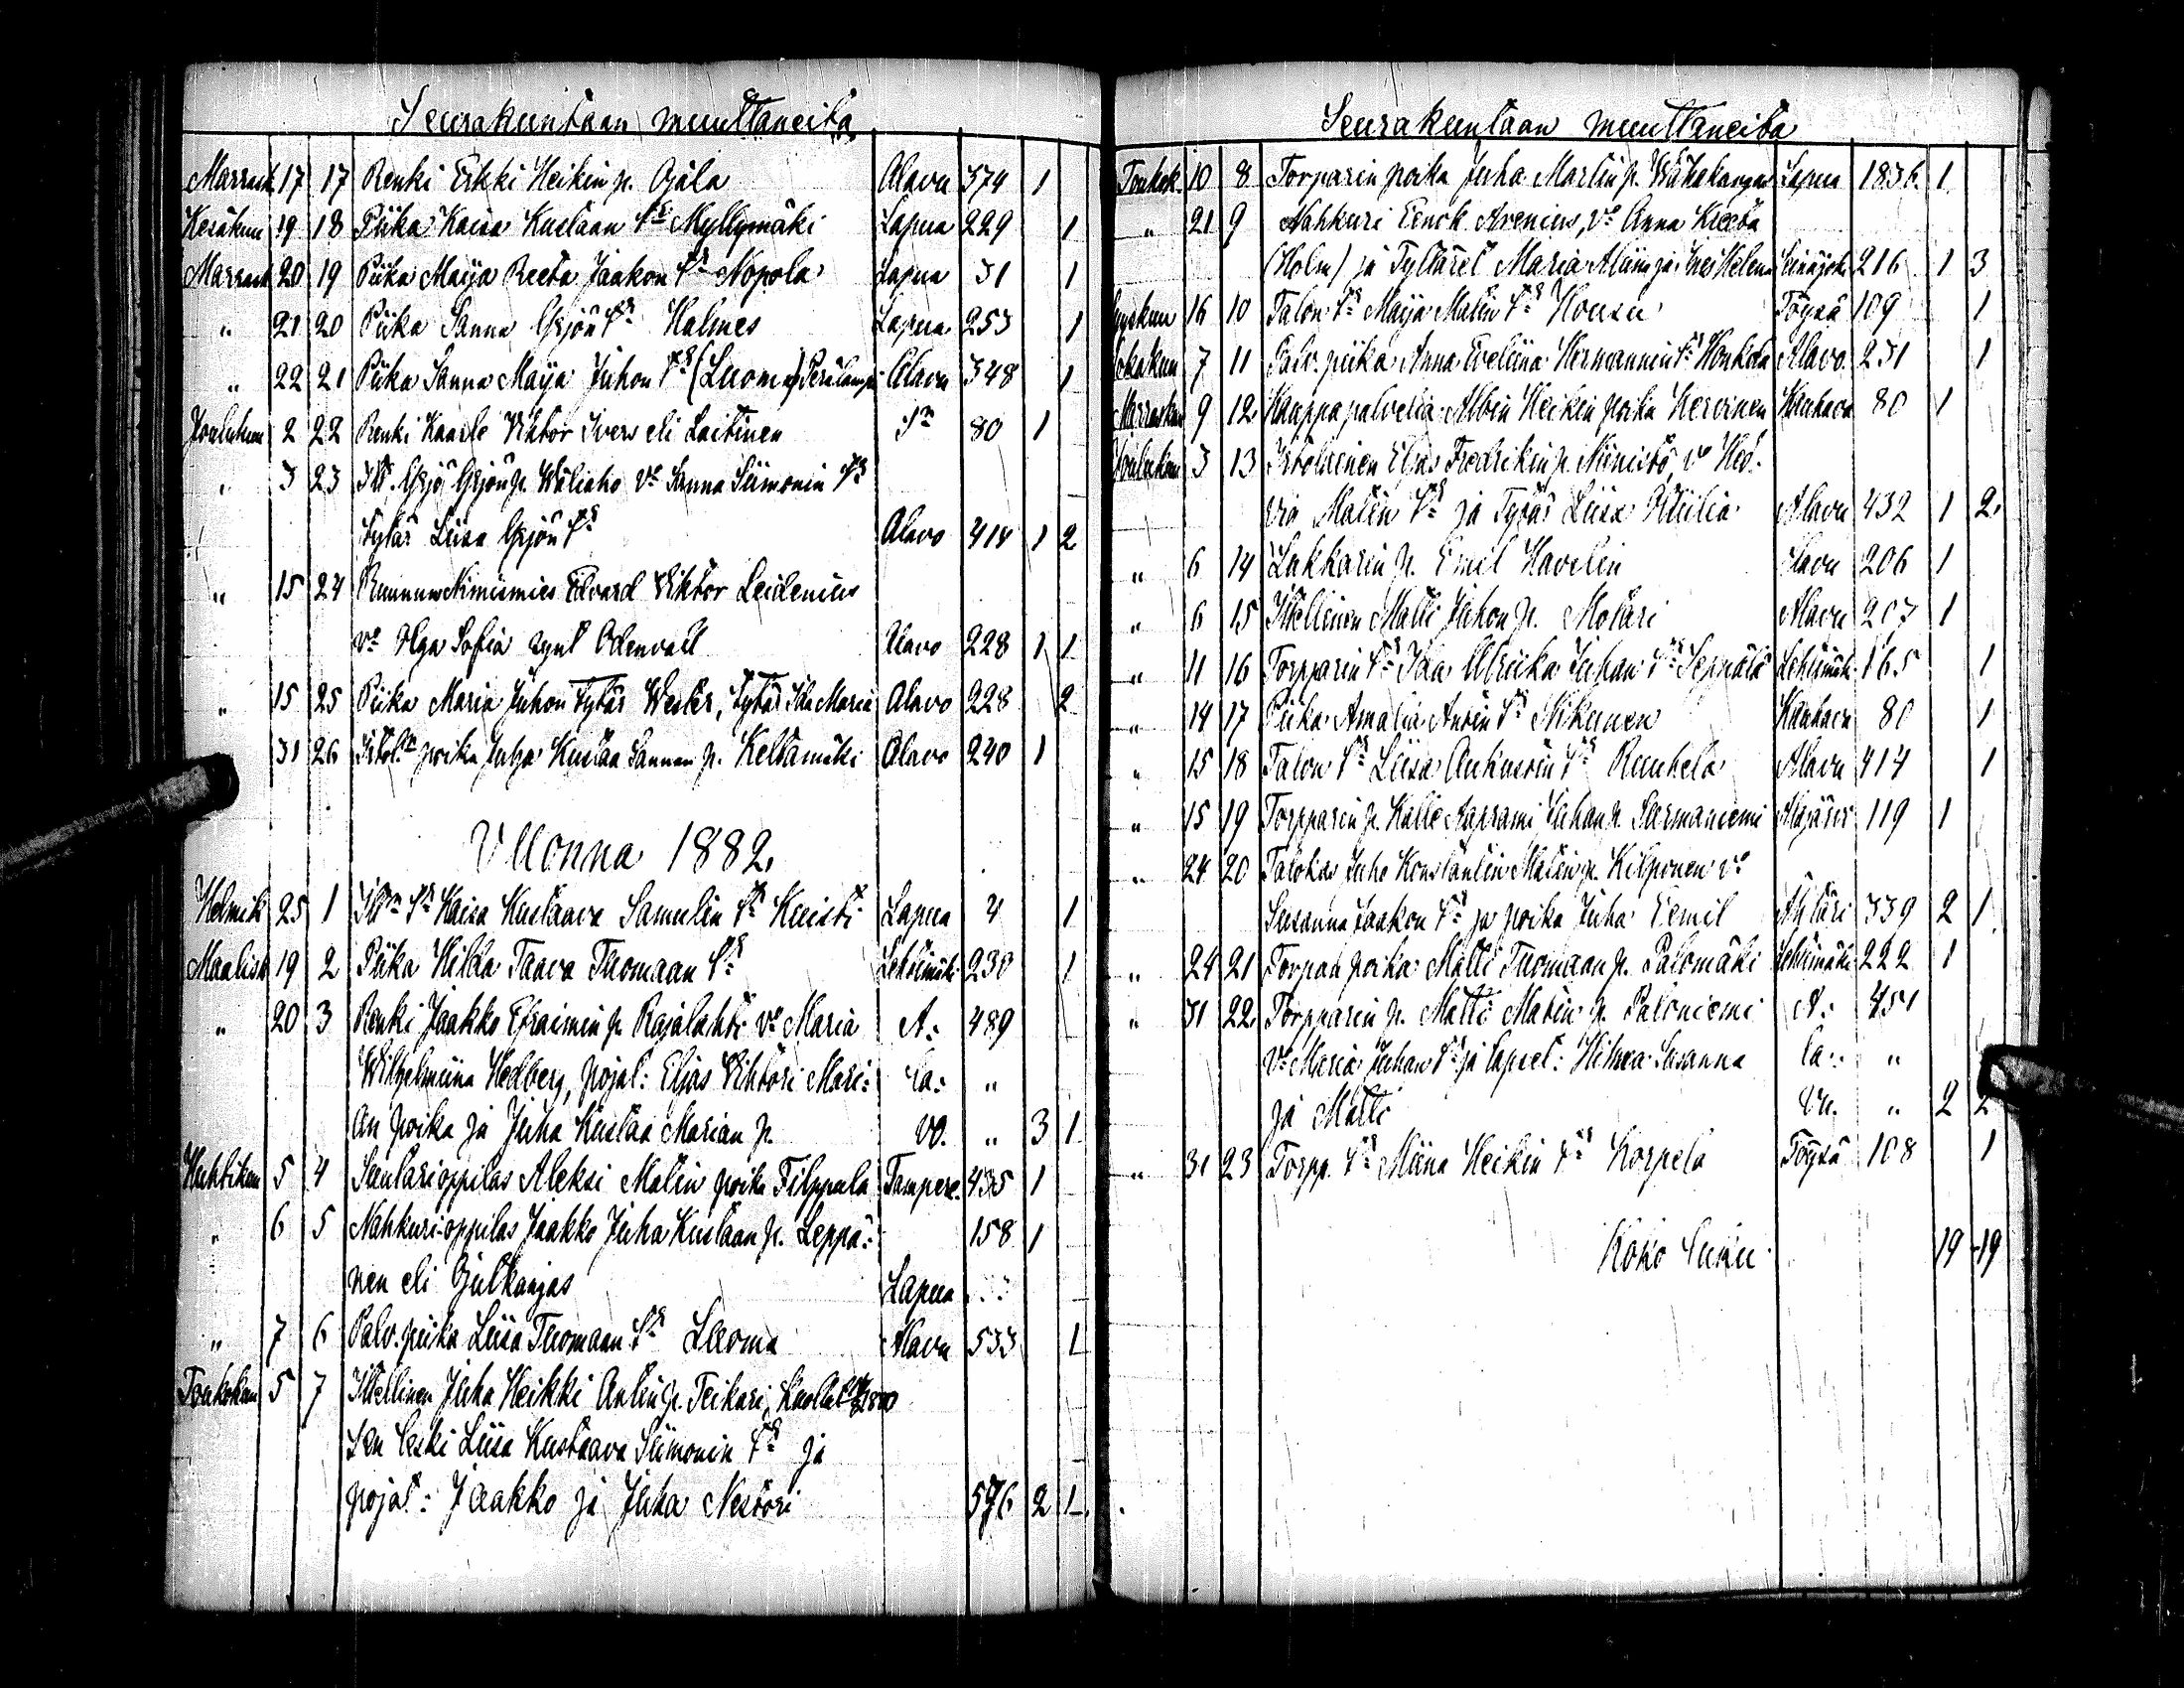 Seurakuntaan muuttaneita
Marrask 17 17 Renki Erkki Heikin p. Ojala Alavu 374 1
Kesäkuu 19 18 Piika Kaisa Kustaan tr Myllymäki Lapua 229 1
Marrask 20 19 Piika Maija Reeta Jaakon tr Nopola Lapua 31 1
" 21 20 Piika Sanna Yrjön tr Halmes Lapua 253 1
" 22 21 Piika Sanna Maija Juhon tr (Luoma) Alavu 348 1
Joulukuu 2 22 Renki Kaarle Viktor Ivers eli Laitinen 80 1
" 3 23 Yrjö Yrjön p. Wäliaho vo Sanna Siimonin tr
Tytär Liisa Yrjön tr Alavo 414 1 2
" 15 24 Ruununnimismies Edvard Viktor Leidenius
vo Olga Sofia synt Odenvall Alavo 228 1 1
" 15 25 Piika Maria Juhon Tytär Wester, Tytär Ida Maria Alavo 228 2
31 26 poika Juha Kustaa Sannan p. Keltamäki Alavo 240 1
Vuonna 1882.
Helmik 25 1 tr Kaisa Kustaava Samulin tr Kuisti Lapua 4 1
Maalisk 19 2 Piika Hilda Taava Tuomaan tr Lehtimäki 230 1
" 20 3 Renki Jaakko Efraimin p. Rajalahti vo Maria A: 489
Wilhelmiina Hedberg, pojat: Eljas Vihtori Mari: la: "
an poika ja Juha Kustaa Marian p. vo. " 3 1
Huhtikuu 5 4 Suutarioppilas Aleksi Matin poika Filppula Tampere 435 1
" 6 5 Nahkuri-oppilas Jaakko Juha Kustaan p. Leppä: 158 1
nen eli Lapua
" 7 6 Palv. piika Liisa Tuomaan tr Luoma Alavu 533 1
Toukokuu 5 7 Itsellinen Juha Heikki Antin p. Teikari, kuollut
Sen leski Liisa Kustaava Siimonin tr ja
pojat: Jaakko ja Juha Nestori 576 2 1
Seurakuntaan muuttaneita
Toukok. 10 8 Torparin poika Juha Martin p. Wähäkangas Lapua 1836 1
" 21 9 Nahkuri Eenok Arenius, vo Anna Kreeta
(Holm) ja Tyttäret Maria Aliina ja Ines Helena Seinäjoki 216 1 3
Syyskuu 16 10 Talon tr Maija Matin tr Housu Töysä 109 1
Lokakuu 7 11 Palv. piika Anna Eveliina Hermannin tr Honkola Alavo 231 1
Marraskuu 9 12 Kauppapalvelia Albin Heikin poika Hervinen Kauhava 80 1
Joulukuu 3 13 Itsellinen Eljas Fredrikin p. Niinistö, vo Hed-
via Matin tr ja Tytär Liisa Alavu 432 1 2
" 6 14 Lukkarin p. Emil Havelin Alavu 206 1
" 6 15 Itsellinen Matti Juhon p. Motari Alavu 207 1
" 11 16 Torpparin tr Ida Ulriika Juhan tr Seppälä Lehtimäki 165 1
" 14 17 Piika Amalia Antin tr Kauhava 80 1
" 15 18 Talon tr Liisa Aukustin tr Ruuhela Alavu 414 1
" 15 19 Torpparin p. Kalle Aaprami Juhan p. Surmaniemi Alajärvi 119 1
" 24 20 Talokas Juho Konstantin Matin p. Kilponen vo
Susanna Jaakon tr ja poika Juha Eemil Ähtäri 339 2 1
" 24 21 Torpan poika Matti Tuomaan p. Palomäki Lehtimäki 222 1
" 31 22 Torpparin p. Matti Matin p. Paloniemi A: 451
vo Maria Juhan tr ja lapset: Hilma Susanna la: "
ja Matti vu. " 2 2
" 31 23 Torpp. tr Miina Heikin tr Korpela Töysä 108 1
Koko luku 19 19